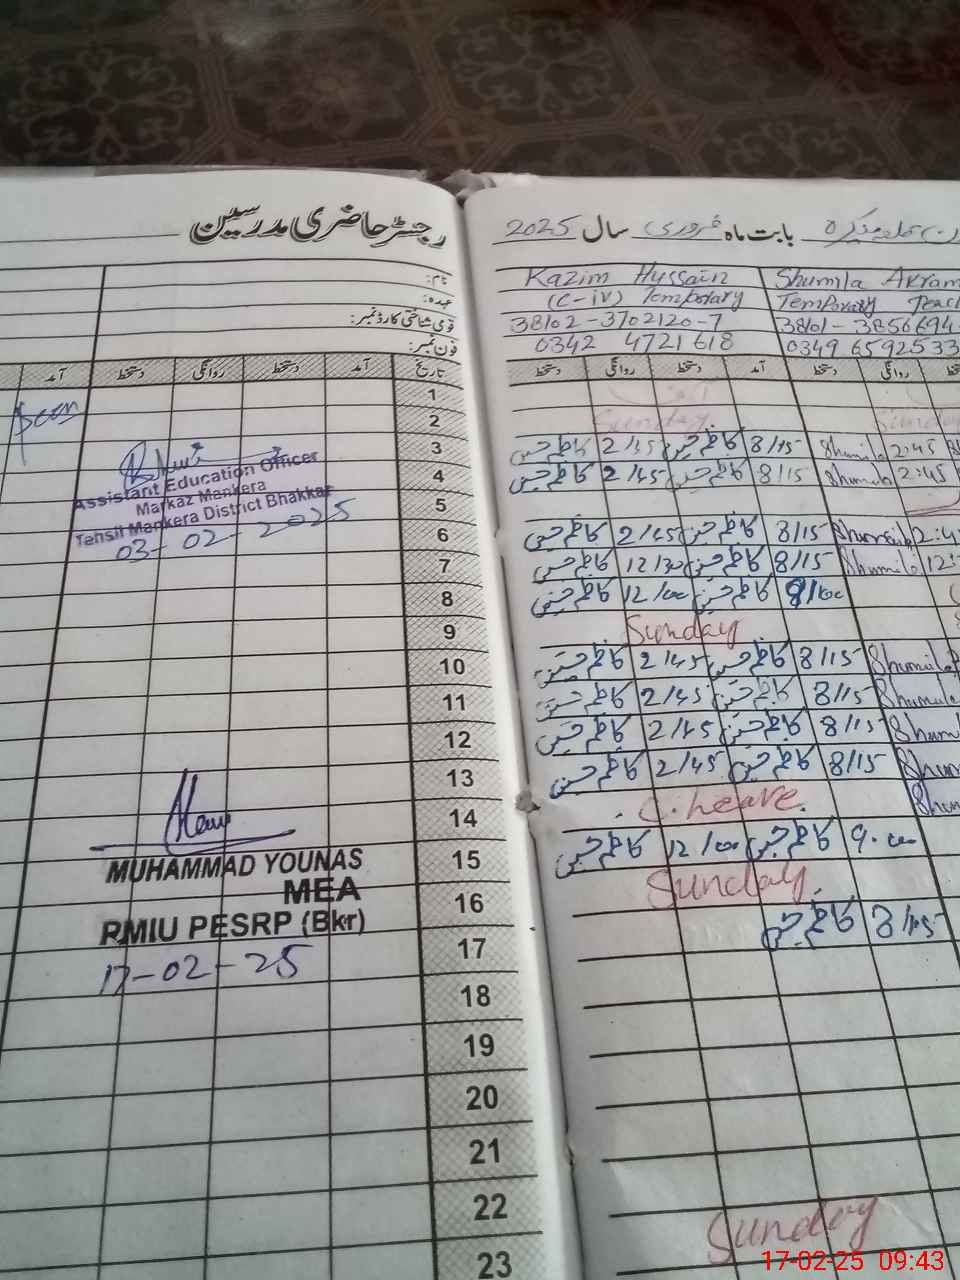 رجسٹر حاضری مدرسین
بابت ماہ فروری سال 2025
نام:
عہدہ:
قومی شناختی کارڈ نمبر:
فون نمبر:
Kazim Hussain
(C-iv) Temporary
38102-3702120-7
0342 4721618
Shumila Akram
Temporary Teac
38101-3856694-
0349 6592533
تاریخ آمد دستخط روانگی دستخط آمد
آمد دستخط روانگی دستخط
روانگی
1
2 Sunday Sunday
3 8/15 کاظم حسین 2/45 کاظم حسین Shumila 2:45
4 8/15 کاظم حسین 2/45 کاظم حسین Shumila 2:45
5
6 8/15 کاظم حسین 2/45 کاظم حسین Shumila
7 8/15 کاظم حسین 12/30 کاظم حسین Shumila
8 کاظم حسین 12/00 کاظم حسین
9 Sunday
10 8/15 کاظم حسین 2/45 کاظم حسین Shumila
11 8/15 کاظم حسین 2/45 کاظم حسین Shumila
12 8/15 کاظم حسین 2/45 کاظم حسین Shumi
13 8/15 کاظم حسین 2/45 کاظم حسین
14 C.Leave
15 9.00 کاظم حسین 12/00 کاظم حسین
16 Sunday
17 8/15 کاظم حسین
18
19
20
21
22
23 Sunday
Assistant Education Officer
Markaz Mankera
Tehsil Mankera District Bhakkar
03-02-2025
MUHAMMAD YOUNAS
MEA
RMIU PESRP (Bkr)
17-02-25
17-02-25 09:43